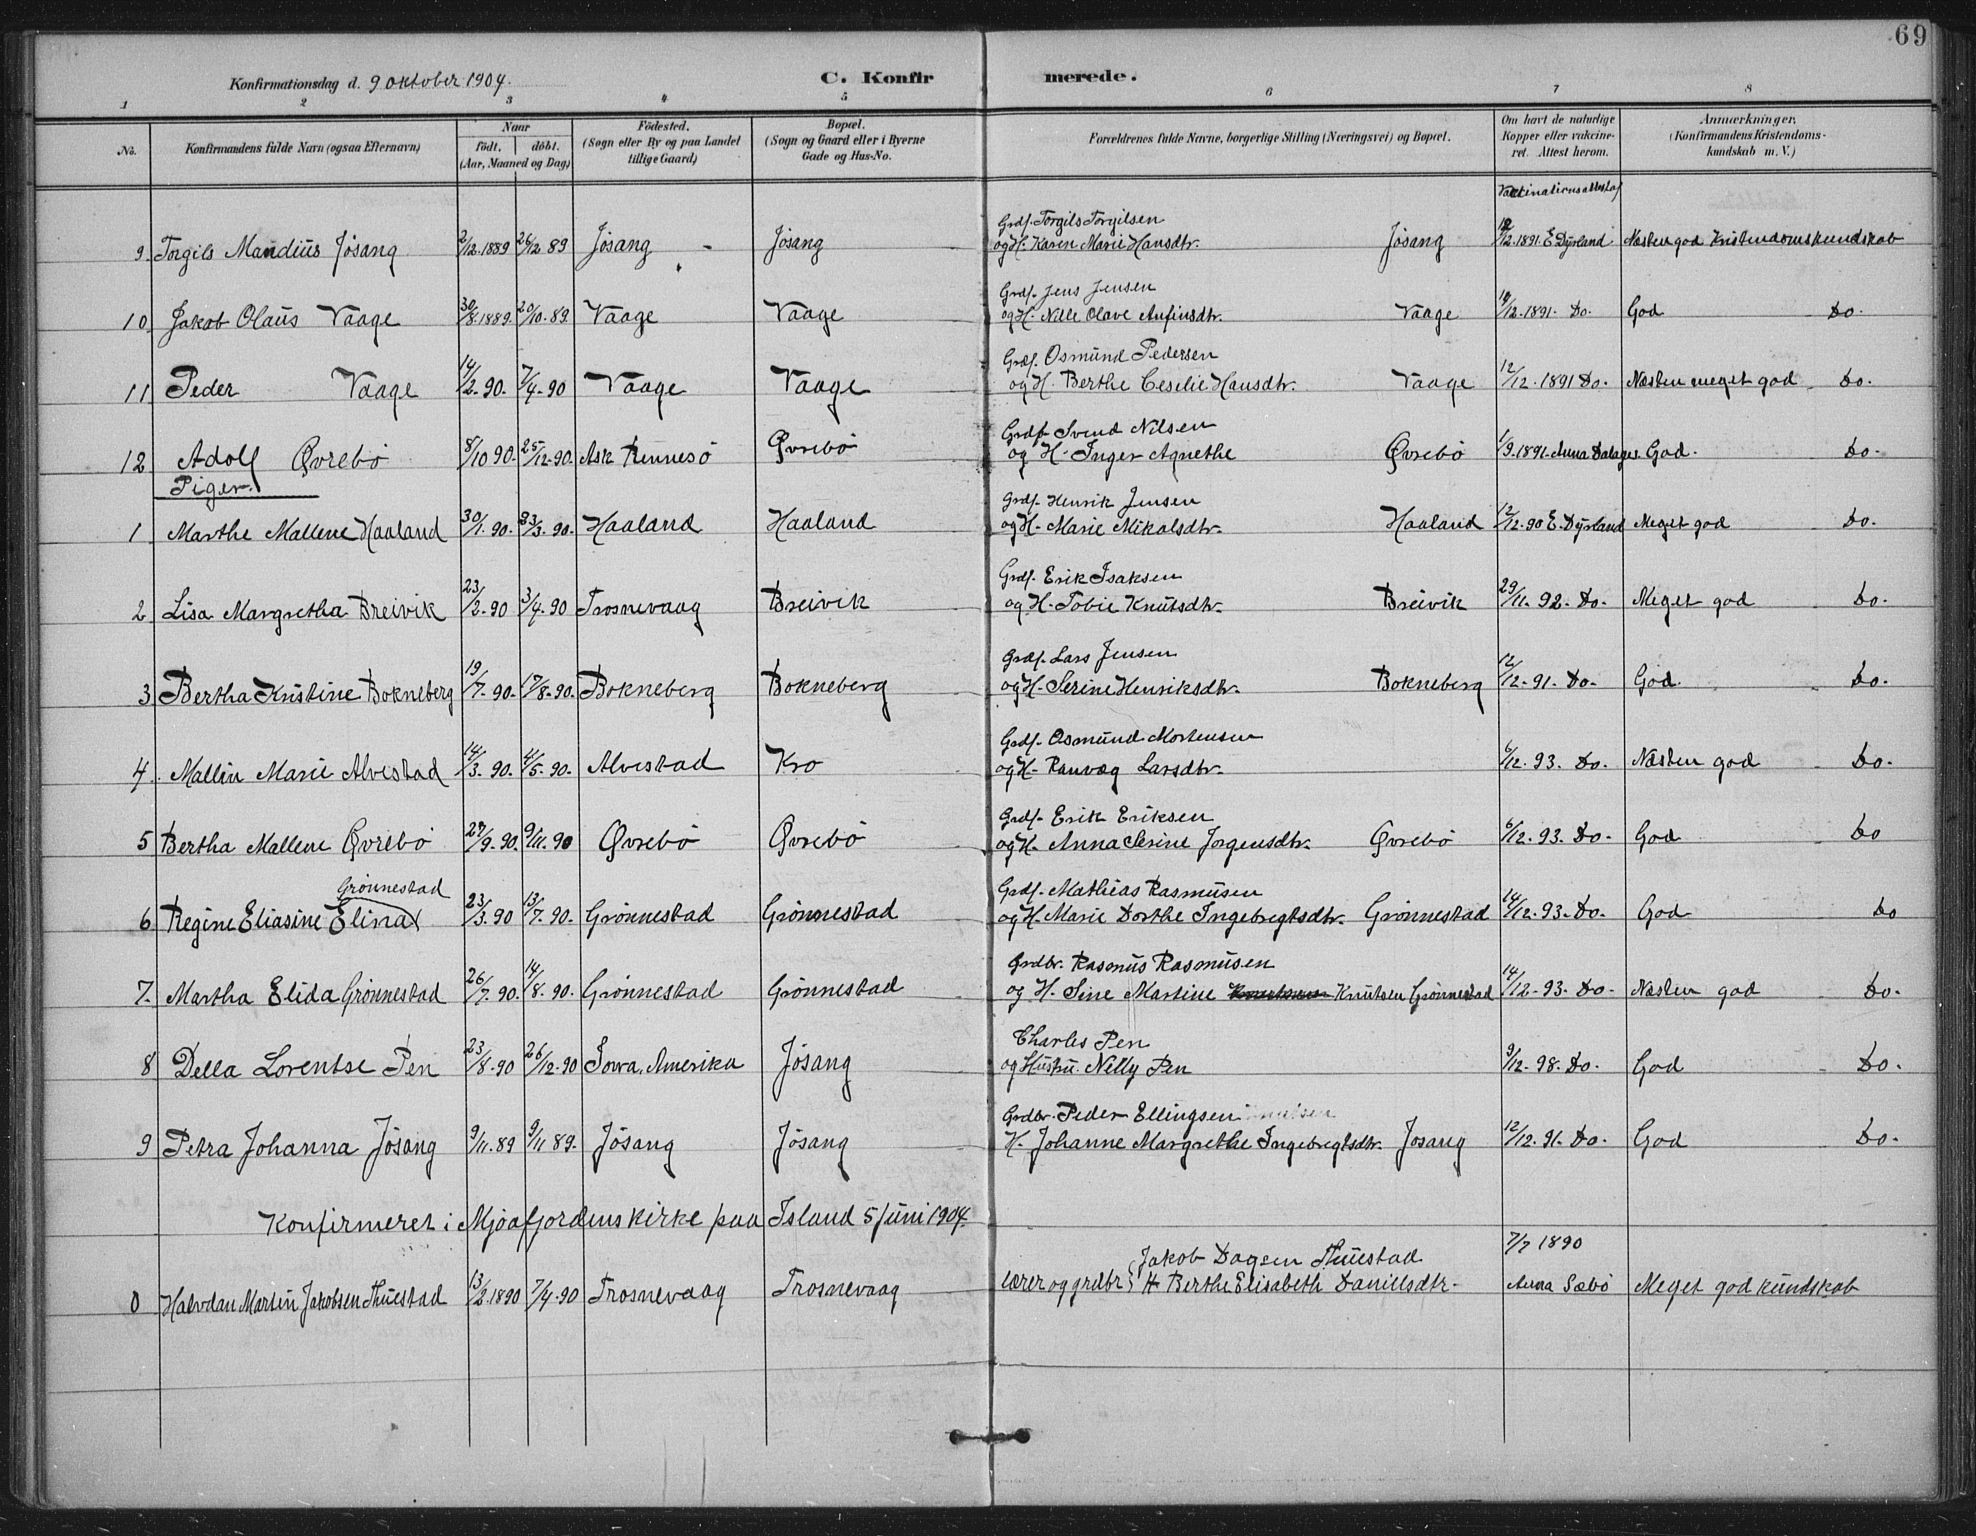 69
Konfirmationsdag d. 9 oktober 1904. C. Konfirmerede.
1 2 3 4 5 6 7 8
No. Konfirmandens fulde Navn (ogsaa Efternavn) Naar født. døbt. (Aar, Maaned og Dag) Fødested. (Sogn eller By og paa Landet tillige Gaard) Bopæl. (Sogn og Gaard eller i Byerne Gade og Hus-No. Forældrenes fulde Navne, borgerlige Stilling (Næringsvei) og Bopæl. Om havt de naturlige Kopper eller vakcineret. Attest herom. Anmærkninger. (Konfirmandens Kristendomskundskab m. V.)
Grdf. Torgils Torgilsen
9. Torgils Mandius Jøsang 2/12.1889 26/12 89 Jøsang Jøsang og H. Karen Marie Hansdtr. Jøsang 12/12.1891. E Dyrland Næsten god Kristendomskundskab
Grdf. Jens Jensen
10 Jakob Olaus Vaage 30/8.1889. 20/10.89. Vaage Vaage og H. Nille Olave Anfinsdtr. Vaage 12/12.1891. Do. God Do.
Grdf. Osmund Pedersen
11 Peder Vaage 14/2.90. 7/4.90 Vaage Vaage og H. Berthe Cesilie Hansdtr. Vaage 12/12.1891 Do. Næsten meget god Do.
Grdf. Svend Nilsen
12 Adolf Øvrebø 8/10 90. 25/12.90. Ask Rennesø Øvrebø og H. Inger Agnethe Øvrebø 1/9.1891. Anna Dalager God. Do.
Piger.
Grdf. Henrik Jensen
1 Marthe Mallene Haaland 30/1.90. 23/3.90. Haaland Haaland og H. Marie Mikalsdtr. Haaland 12/12.90 E. Dyrland Meget god Do.
Grdf. Erik Isaksen
2 Lisa Margretha Breivik 23/2.90 3/4.90 Trosnevaag Breivik og H. Tobie Knutsdtr. Breivik 29/11.92. Do. Meget god Do.
Grdf. Lars Jensen
3 Bertha Kristine Bokneberg 19/7.90. 17/8.90. Bokneberg Bokneberg og H. Serine Henriksdtr. Bokneberg 12/12.91. Do. God. Do.
Grdf. Osmund Mortensen
4. Mallin Marie Alvestad 14/3.90. 4/5.90. Alvestad Kro og H. Ranvæg Larsdtr. 6/12.93. Do. Næsten god Do.
Grdf. Erik Eriksen
5 Bertha Mallene Øvrebø 27/9.90. 9/11.90 Øvrebø Øvrebø og H. Anna Serine Jørgensdtr. Øvrebø 6/12.93. Do. God Do
Grønnestad Grdf. Mathias Rasmusen
6 Regine Eliasine Elina 23/3.90 13/7.90. Grønnestad Grønnestad og H. Marie Dorthe Ingebregtsdtr. Grønnestad 14/12.93. Do. God Do
Grdbr. Rasmus Rasmusen
7. Martha Elida Grønnestad 26/7.90. 14/8.90. Grønnestad Grønnestad og H. Sine Martine Knutsen Grønnestad 14/12.93. Do. Næsten god Do.
Charles Pen
8 Della Lorentse Pen 23/8.90 26/12.90 Iowa, Amerika Jøsang og Hustru Nelly Pen 9/12.98. Do. God Do.
Grdbr. Peder Ellingsen
9 Petra Johanna Jøsang 9/11.89 9/11 89. Jøsang Jøsang H. Johanne Margrethe Ingebregtsdtr. Jøsang 12/12.91. Do. God Do.
Konfirmeret i Mjoafjordens kirke paa Island 5 Juni 1904.
Jakob Dagsen Thuestad 7/7 1890
0 Halvdan Martin Jakobsen Thuestad 13/2.1890 7/4.90 Trosnevaag Trosnevaag lærer og grdbr H Berthe Elisabeth Danielsdtr. Anna Sæbø Meget god kundskab